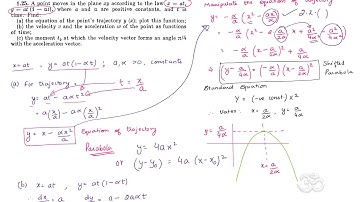 1.25. A point moves in the plane xy according to the law x = at,
y = at (1 − αt), where a and α are positive constants, and t is
time. Find:
(a) the equation of the point's trajectory y (x); plot this function;
(b) the velocity v and acceleration w of the point as functions
of time;
(c) the moment t₀ at which the velocity vector forms an angle π/4
with the acceleration vector.
x=at y= at(1-αt) a,α >0, constants
(a) For trajectory t= x/a
y= at - aαt²
= a(x/a) - aα(x/a)²
y = x - αx²/a Equation of trajectory
Parabola
y= 4ax²
or (y-y₀) = 4a(x-x₀)²
(b) x= at, y= at(1-αt)
dx = a dy = a - 2aαt
Manipulate the Equation of trajectory
= -α/a (x - a/2α)² + a/4α
(y - a/4α) = (-α/a)(x - a/2α)²
Shifted
Parabola
Standard Equation
Y = (-ve const) X²
x= a/2α y= a/4α
y= a/4α
x= a/2α